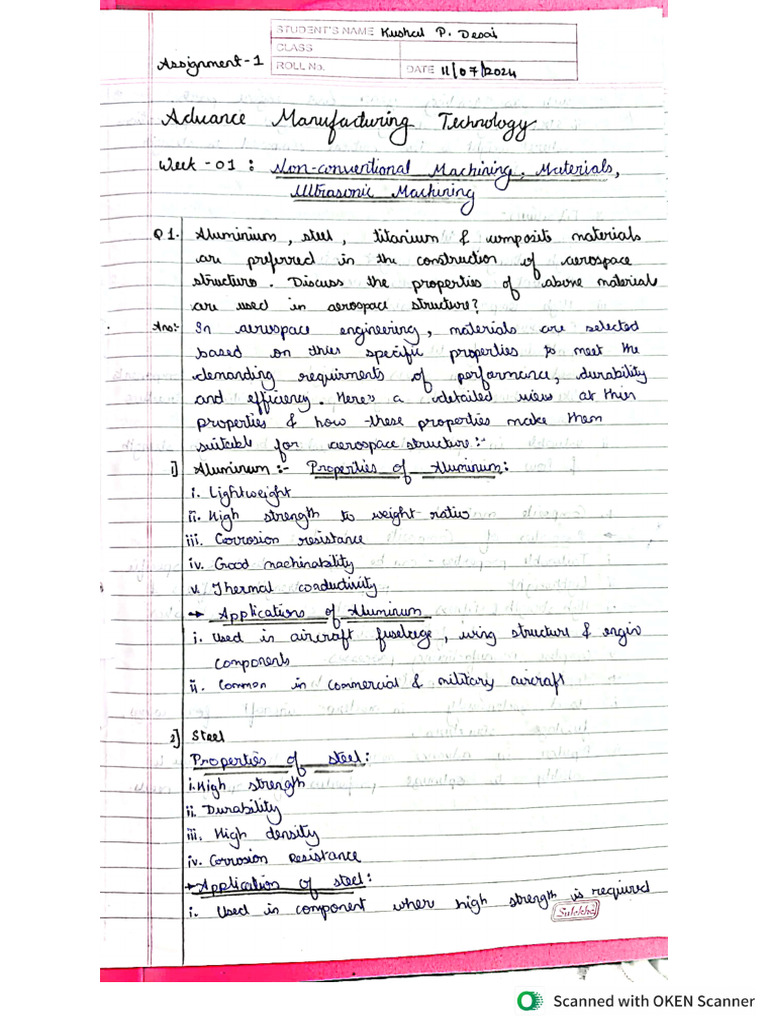 STUDENT'S NAME Kushal P. Desai
CLASS
Assignment-1
ROLL No. DATE 11/07/2024
Advance Manufacturing Technology
Week -01 : Non-conventional Machining, Materials,
Ultrasonic Machining
Q1. Aluminium, steel, titanium & composite materials
are preferred in the construction of aerospace
structure. Discuss the properties of above material
are used in aerospace structure?
Ans:- In aerospace engineering, materials are selected
based on thier specific properties to meet the
demanding requirments of performance, durability
and efficiency. Here's a detailed view at thier
properties & how these properties make them
suitable for aerospace structure:-
1) Aluminum :- Properties of Aluminum:
i. Lightweight
ii. High strength to weight ratio
iii. Corrosion resistance
iv. Good machinability
v. Thermal conductivity
→ Applications of Aluminum
i. Used in aircraft fuselage, wing structure & engine
components
ii. Common in commercial & military aircraft
2) Steel
Properties of steel:
i. High strength
ii. Durability
iii. High density
iv. Corrosion Resistance
→ Application of steel:
i. Used in component where high strength is required
Sulekha
Scanned with OKEN Scanner